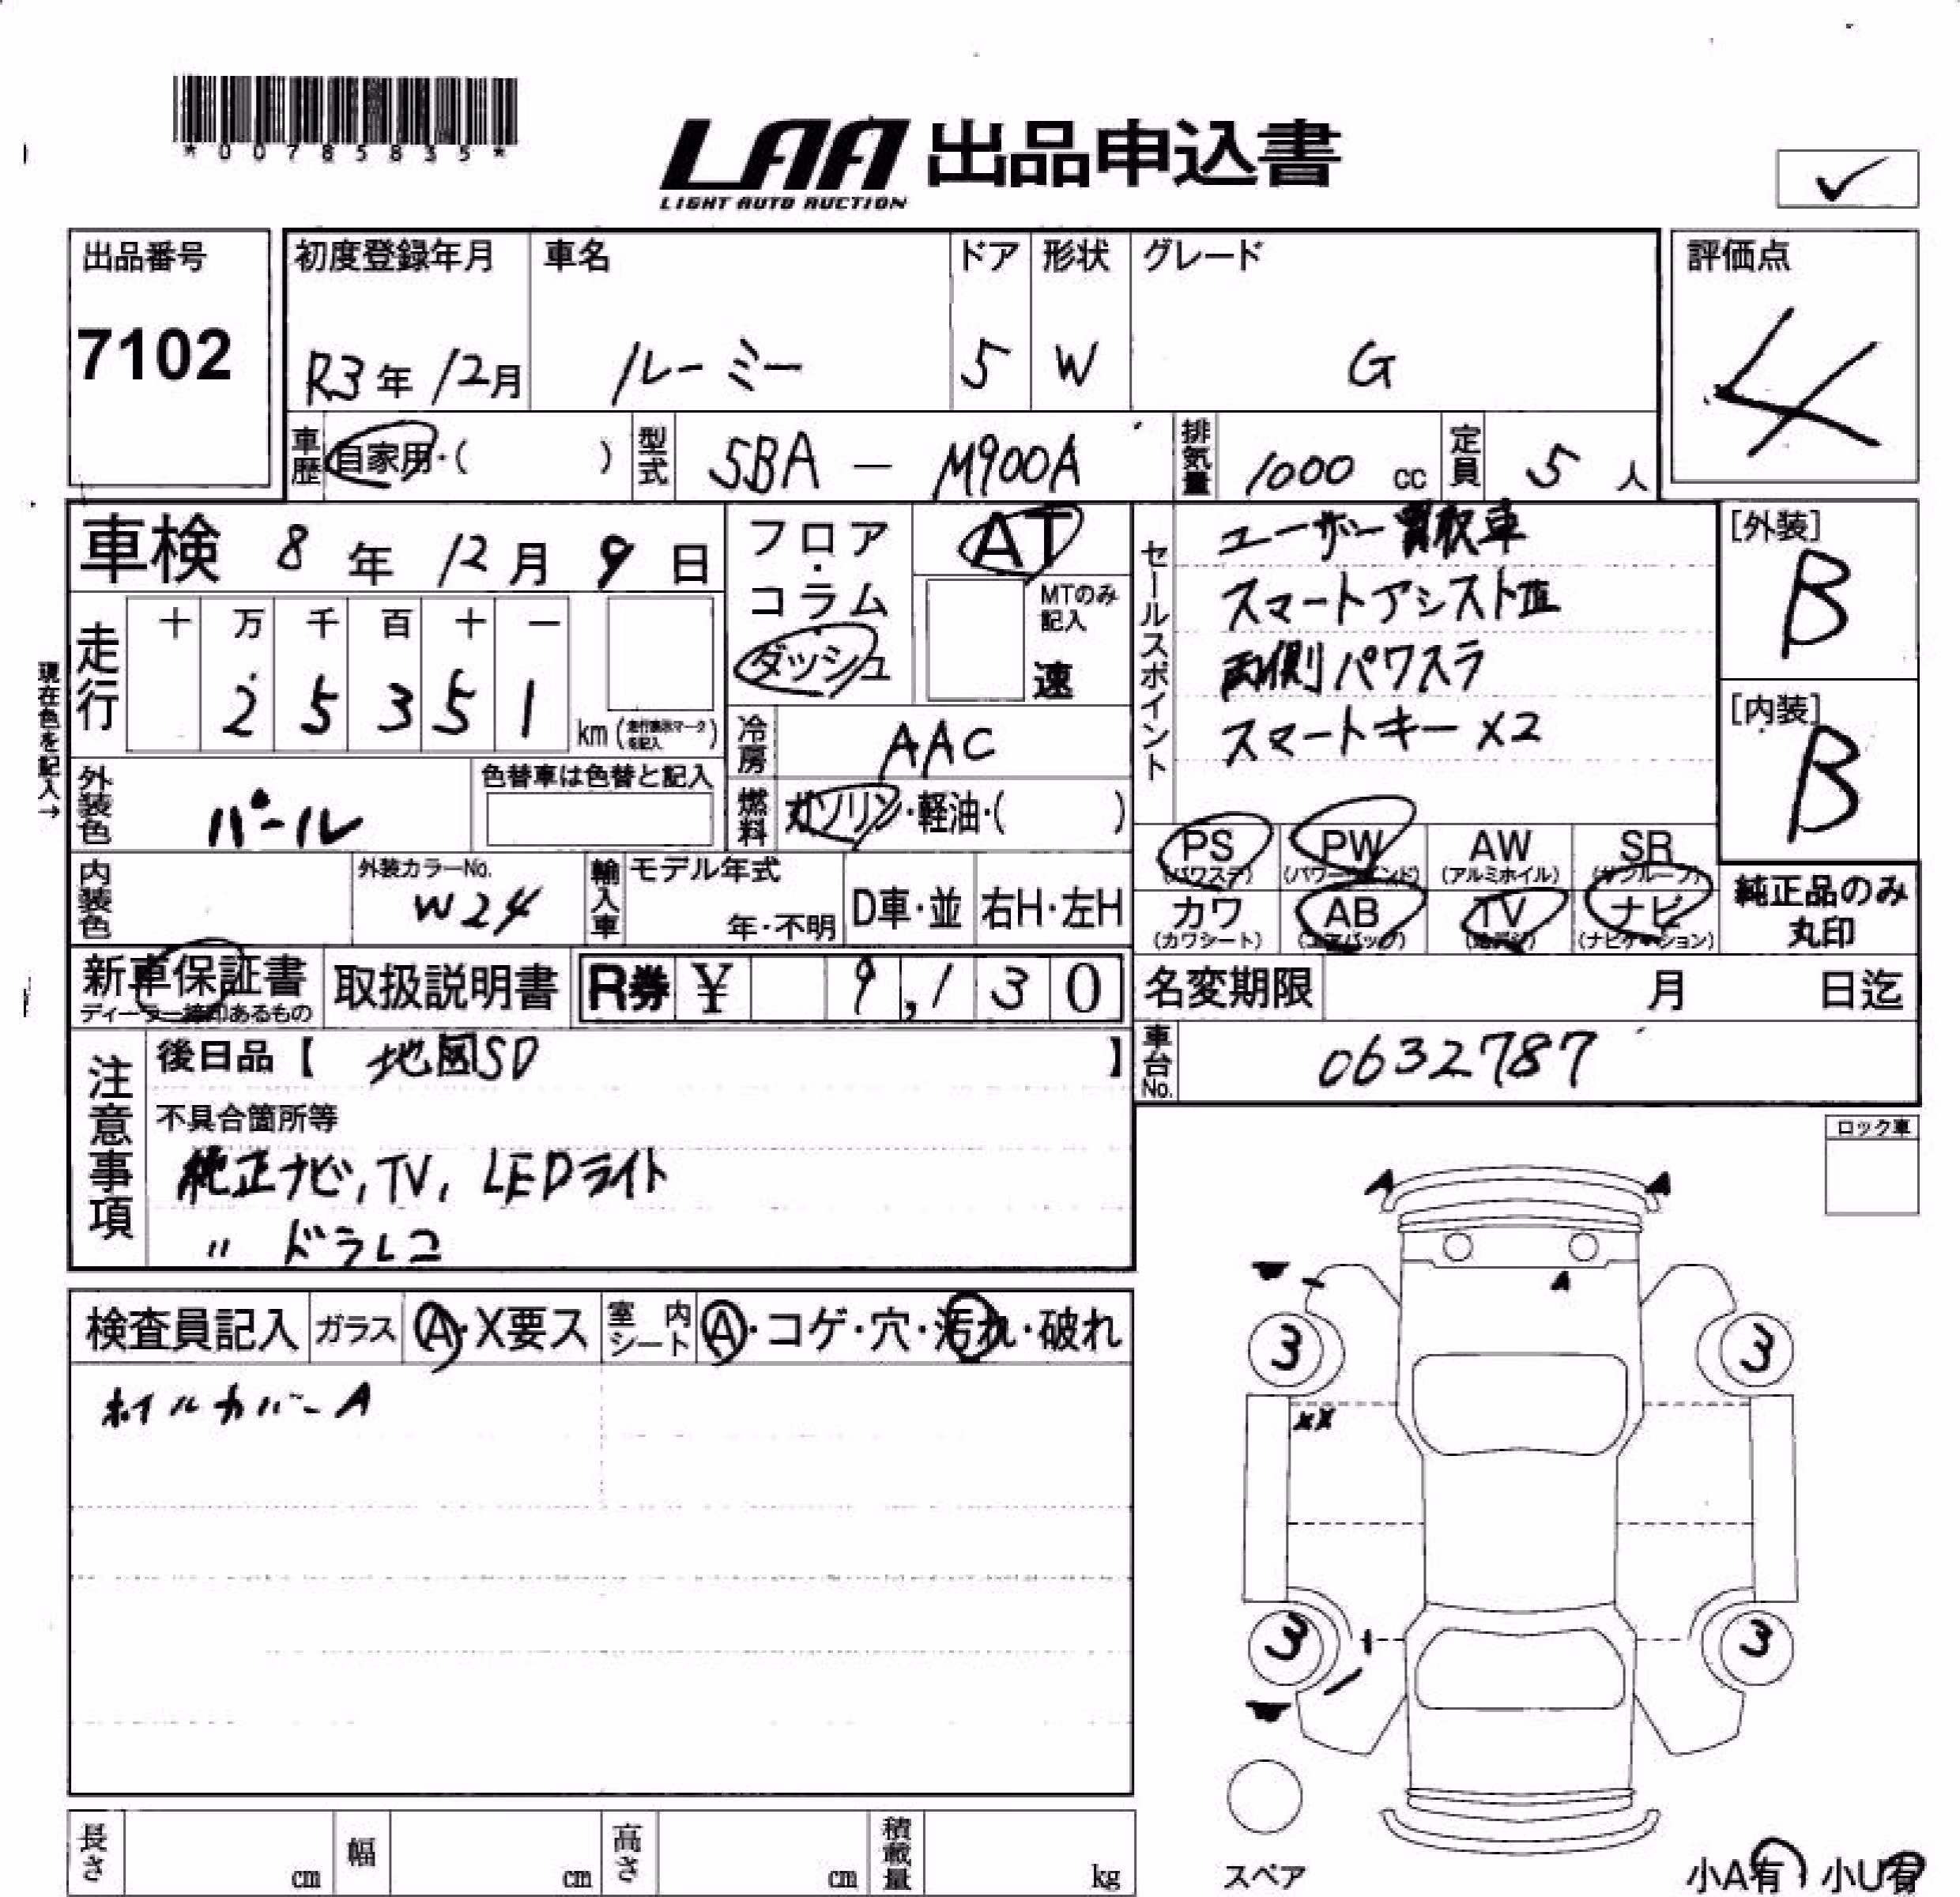 *00785835*
LAA 出品申込書
LIGHT AUTO AUCTION
✓
出品番号
7102
初度登録年月 車名 ドア 形状 グレード
R3年 12月 ルーミー 5 W G
評価点
4
車歴 自家用・( ) 型式 5BA - M900A 排気量 1000 cc 定員 5 人
車検 8年 12月 9日
フロア・コラム・ダッシュ
AT
MTのみ記入
速
セールスポイント
ユーザー買取車
スマートアシストⅢ
両側パワスラ
スマートキー X2
[外装]
B
[内装]
B
現在色を記入→
走行 十 万 千 百 十 一
2 5 3 5 1 km (走行表示マークを記入)
冷房 AAC
燃料 ガソリン・軽油・( )
外装色 パール 色替車は色替と記入
内装色 外装カラーNo. W24
輸入車 モデル年式 年・不明 D車・並 右H・左H
PS (パワステ) PW (パワーウインド) AW (アルミホイル) SR (サンルーフ)
カワ (カワシート) AB (エアバッグ) TV ナビ (ナビゲーション)
純正品のみ
丸印
新車保証書 取扱説明書 R券 ¥ 9,130
ディーラー捺印あるもの
名変期限 月 日迄
車台No. 0632787
注意事項
後日品【 地図SD 】
不具合箇所等
純正ナビ, TV, LEDライト
〃 ドラレコ
ロック車
検査員記入 ガラス A・X要ス 室内シート A・コゲ・穴・汚れ・破れ
ホイルカバーA
A A
A
3 3
XX
3 3
スペア
小A有 小U有
長さ cm 幅 cm 高さ cm 積載量 kg